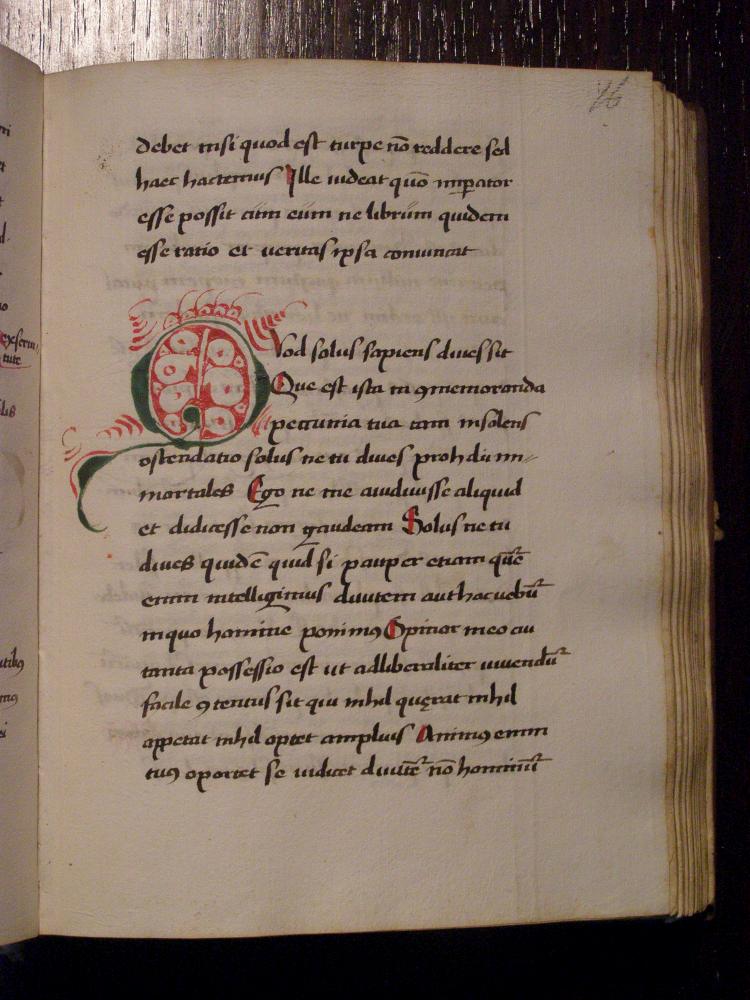 76
debet nisi quod est turpe nō reddere sed
haec hactenus Ille uideat quō imperator
esse possit cum eum ne librum quidem
esse ratio et ueritas ipsa conuincat
Quod solus sapiens diues sit
Que est ista in ꝯmemoranda
pecunia tua tam insolens
ostendatio solus ne tu diues proh dii im-
mortales Ego ne me audiuisse aliquid
et didicesse non gaudeam Solus ne tu
diues quidē quid si pauper etiam quē
enim intelligimus diuitem aut hac uerbū
in quo homine ponimꝰ Opinor meo cu
tanta possessio est ut ad liberaliter uiuendū
facile ꝯtentus sit qui nihil quęrat nihil
appetat nihil optet amplius Animꝰ enim
tuꝰ oportet se iudicet diuitē nō hominū
exserui
tute